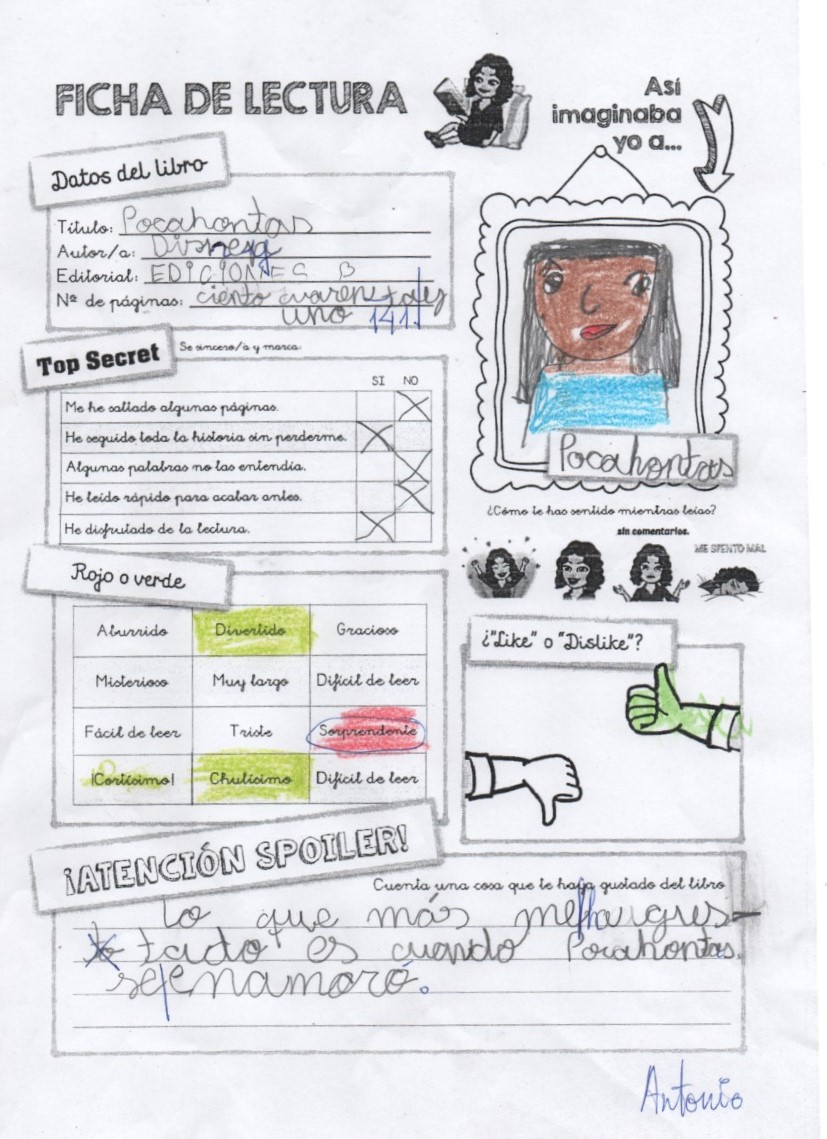 FICHA DE LECTURA
Así
imaginaba
yo a...
Datos del libro
Título: Pocahontas
Autor/a: Disney
Editorial: EDICIONES B
Nº de páginas: ciento cuarenta y
uno 141
Pocahontas
Top Secret Se sincero/a y marca.
SI NO
Me he saltado algunas páginas.
He seguido toda la historia sin perderme.
Algunas palabras no las entendía.
He leído rápido para acabar antes.
He disfrutado de la lectura.
¿Cómo te has sentido mientras leías?
sin comentarios.
ME SIENTO MAL
Rojo o verde
Aburrido Divertido Gracioso
Misterioso Muy largo Difícil de leer
Fácil de leer Triste Sorprendente
¡Cortísimo! Chulísimo Difícil de leer
¿"Like" o "Dislike"?
¡ATENCIÓN SPOILER!
Cuenta una cosa que te haya gustado del libro
lo que más me ha gus-
tado es cuando Pocahontas
se enamoró.
Antonio